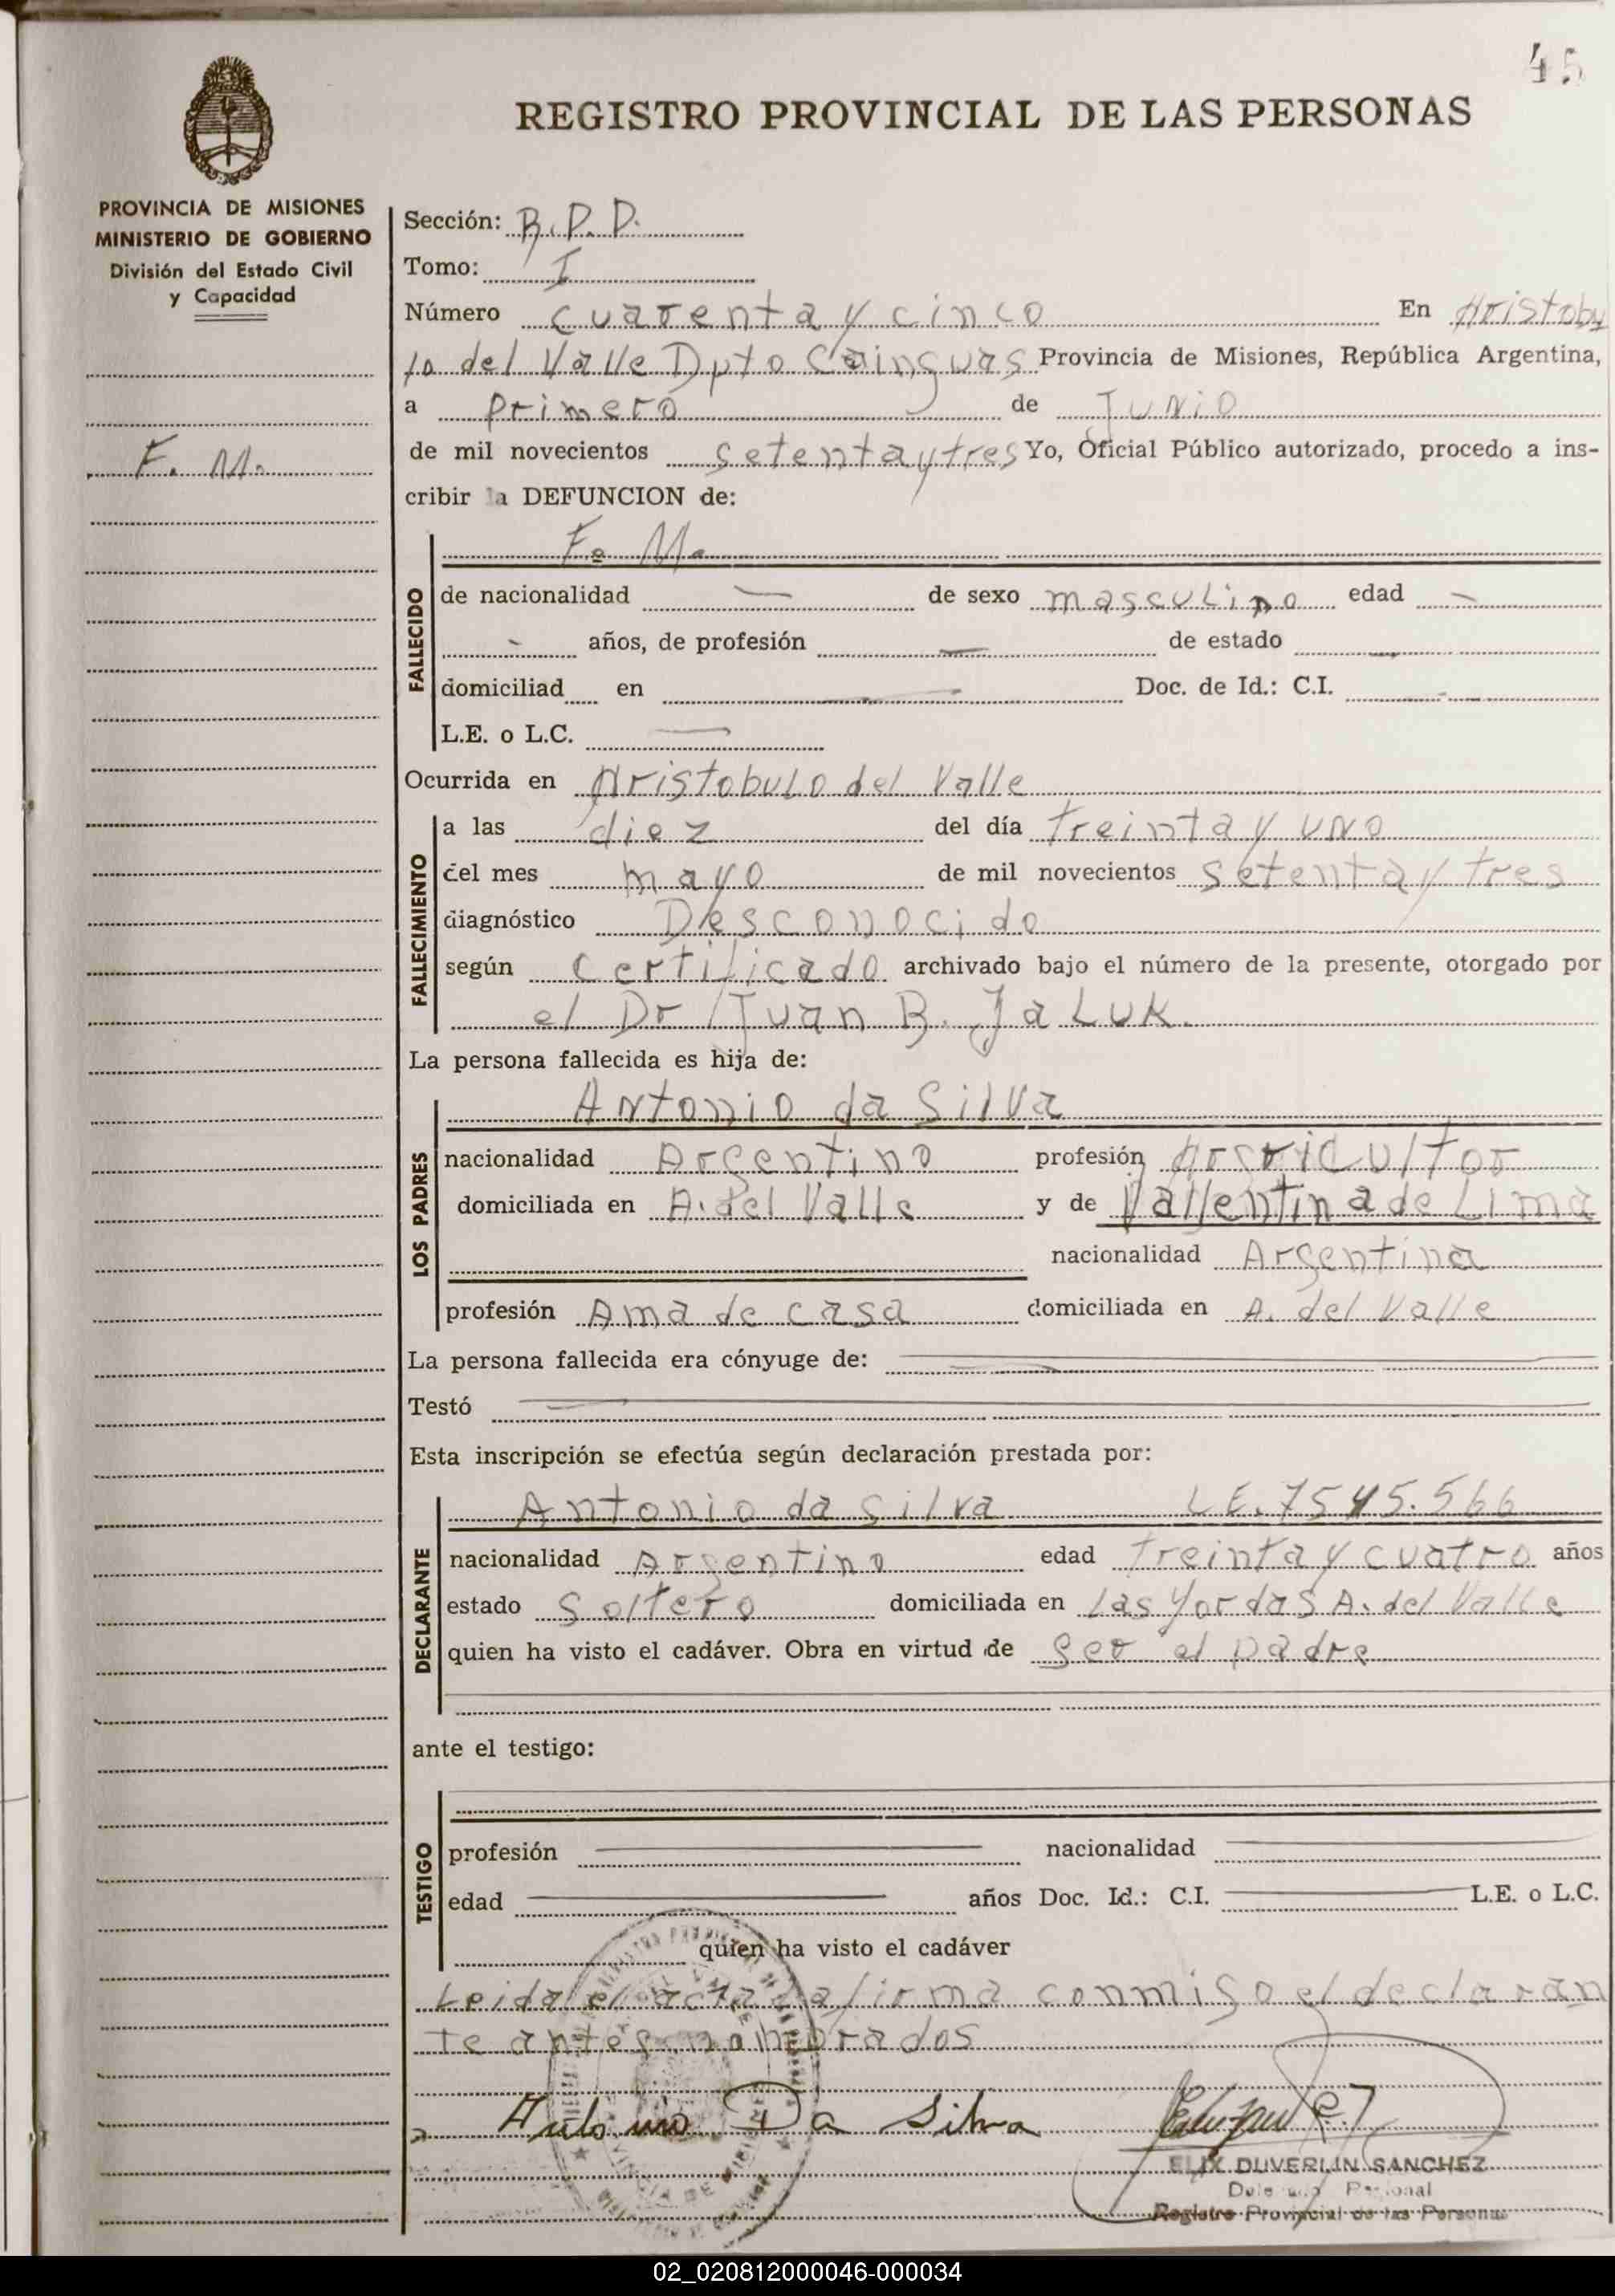 45
REGISTRO PROVINCIAL DE LAS PERSONAS
PROVINCIA DE MISIONES
MINISTERIO DE GOBIERNO
División del Estado Civil
y Capacidad
F. M.
Sección: R.P.D.
Tomo: I
Número cuarenta y cinco En Aristobu
lo del Valle Dpto Cainguas Provincia de Misiones, República Argentina,
a primero de Junio
de mil novecientos setenta y tres Yo, Oficial Público autorizado, procedo a ins-
cribir la DEFUNCION de:
F. M.
FALLECIDO
de nacionalidad — de sexo masculino edad -
- años, de profesión — de estado —
domiciliad en — Doc. de Id.: C.I. -
L.E. o L.C. —
Ocurrida en Aristobulo del Valle
FALLECIMIENTO
a las diez del día treinta y uno
del mes mayo de mil novecientos setenta y tres
diagnóstico Desconocido
según certificado archivado bajo el número de la presente, otorgado por
el Dr Juan B. Jaluk.
La persona fallecida es hija de:
Antonio da Silva
LOS PADRES
nacionalidad Argentino profesión Agricultor
domiciliada en A. del Valle y de Vallentina de Lima
nacionalidad Argentina
profesión Ama de casa domiciliada en A. del Valle
La persona fallecida era cónyuge de: —
Testó —
Esta inscripción se efectúa según declaración prestada por:
Antonio da Silva L.E. 7545.566
DECLARANTE
nacionalidad Argentino edad treinta y cuatro años
estado Soltero domiciliada en Las Yordas A. del Valle
quien ha visto el cadáver. Obra en virtud de ser el padre
ante el testigo:
TESTIGO
profesión — nacionalidad —
edad — años Doc. Id.: C.I. — L.E. o L.C.
quien ha visto el cadáver
Leida el acta la firma conmigo el declaran
te antes nombrados
Antonio Da Silva
ELIX DUVERLIN SANCHEZ
Registro Provincial de las Personas
02_020812000046-000034